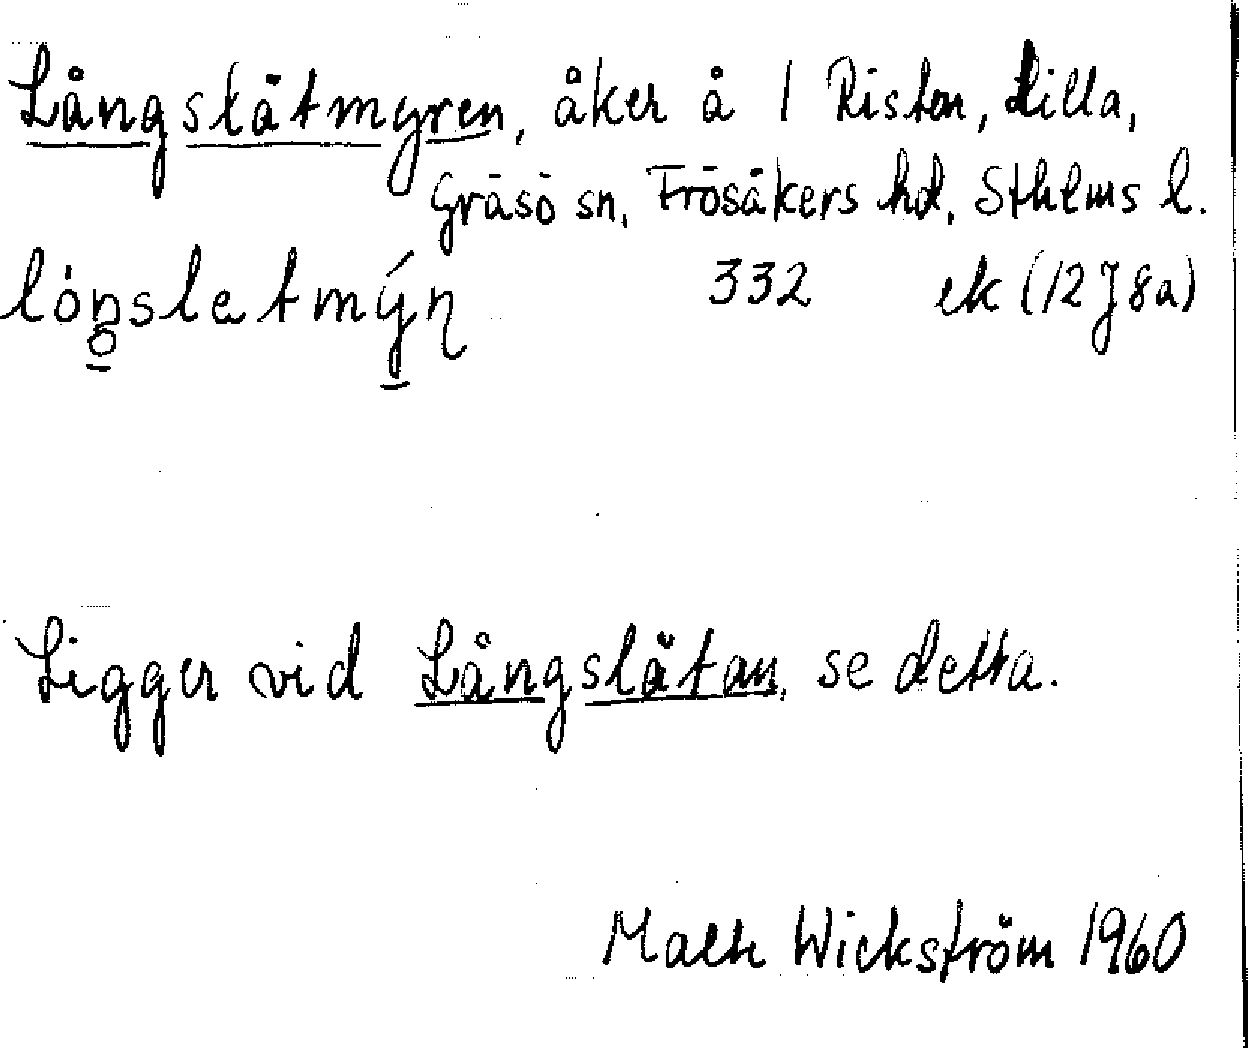 Långslätmyren, åker å 1 Risten, Lilla,
Gräsö sn, Frösåkers hd, Sthlms l.
332 ek (12 J 8a)
Ligger vid Långslätan, se detta.
Wickström 1960